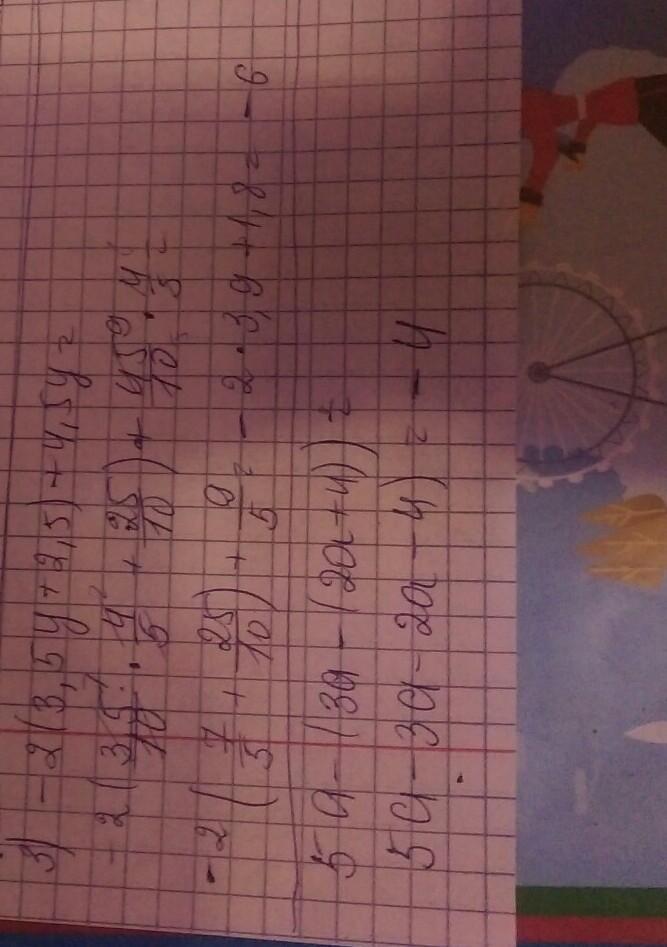 3) -2(3,5y+2,5)+4,5y=
-2(35/10·4/5+25/10)+45/10·4/5=
-2(7/5+25/10)+9/5=-2·3,9+1,8=-6
5a-(3a-(2a+4))=
5a-3a-2a-4)=-4